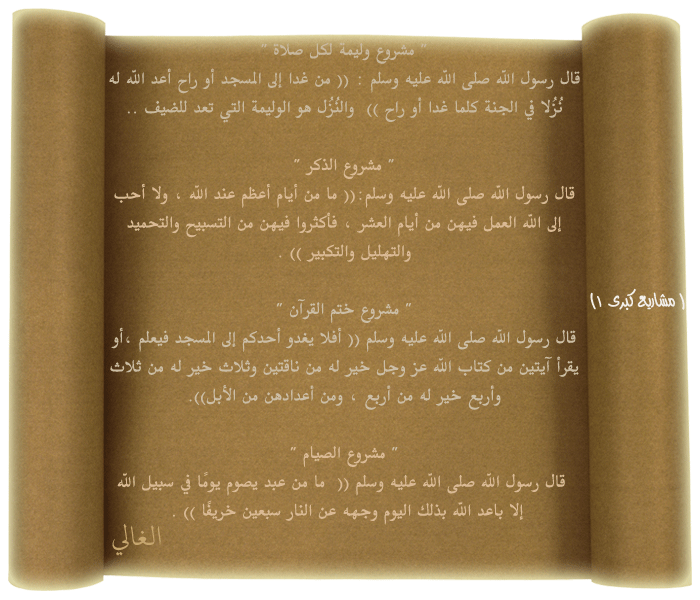 " مشروع وليمة لكل صلاة "
قال رسول الله صلى الله عليه وسلم : (( من غدا إلى المسجد أو راح أعد الله له
نُزُلا في الجنة كلما غدا أو راح )) والنُزُل هو الوليمة التي تعد للضيف ..
" مشروع الذكر "
قال رسول الله صلى الله عليه وسلم:(( ما من أيام أعظم عند الله ، ولا أحب
إلى الله العمل فيهن من أيام العشر ، فأكثروا فيهن من التسبيح والتحميد
والتهليل والتكبير )) .
( مشاريع كبرى ١)
" مشروع ختم القرآن "
قال رسول الله صلى الله عليه وسلم (( أفلا يغدو أحدكم إلى المسجد فيعلم ،أو
يقرأ آيتين من كتاب الله عز وجل خير له من ناقتين وثلاث خير له من ثلاث
وأربع خير له من أربع ، ومن أعدادهن من الأبل)).
" مشروع الصيام "
قال رسول الله صلى الله عليه وسلم (( ما من عبد يصوم يومًا في سبيل الله
إلا باعد الله بذلك اليوم وجهه عن النار سبعين خريفًا )) .
الغالي